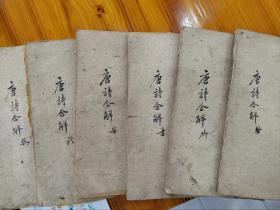 唐詩合解
唐詩合解
唐詩合解
唐詩合解 書
唐詩合解
唐詩合解